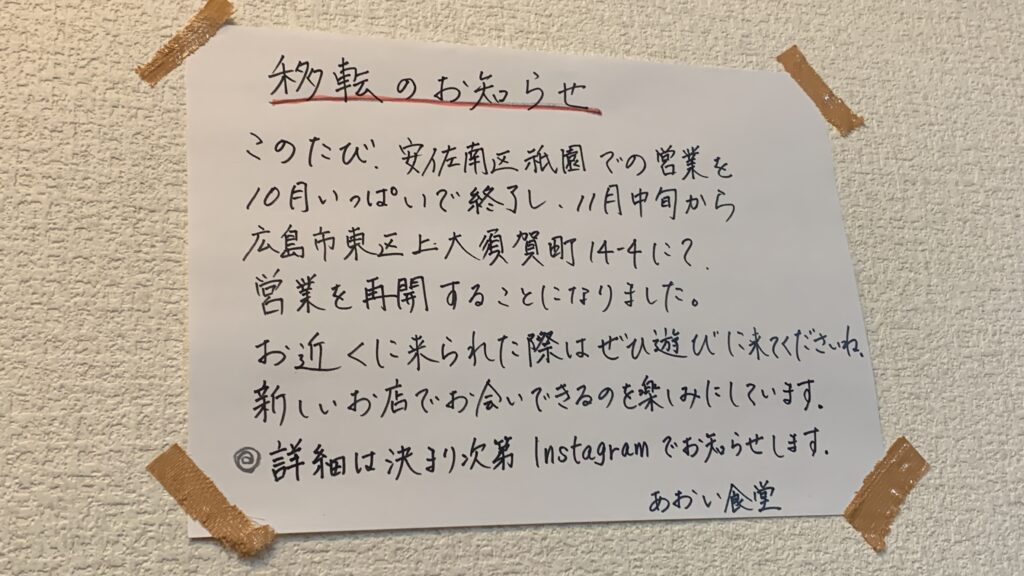 移転のお知らせ
このたび、安佐南区祇園での営業を
10月いっぱいで終了し、11月中旬から
広島市東区上大須賀町14-4にて
営業を再開することになりました。
お近くに来られた際はぜひ遊びに来てくださいね。
新しいお店でお会いできるのを楽しみにしています。
◎詳細は決まり次第Instagramでお知らせします。
あおい食堂